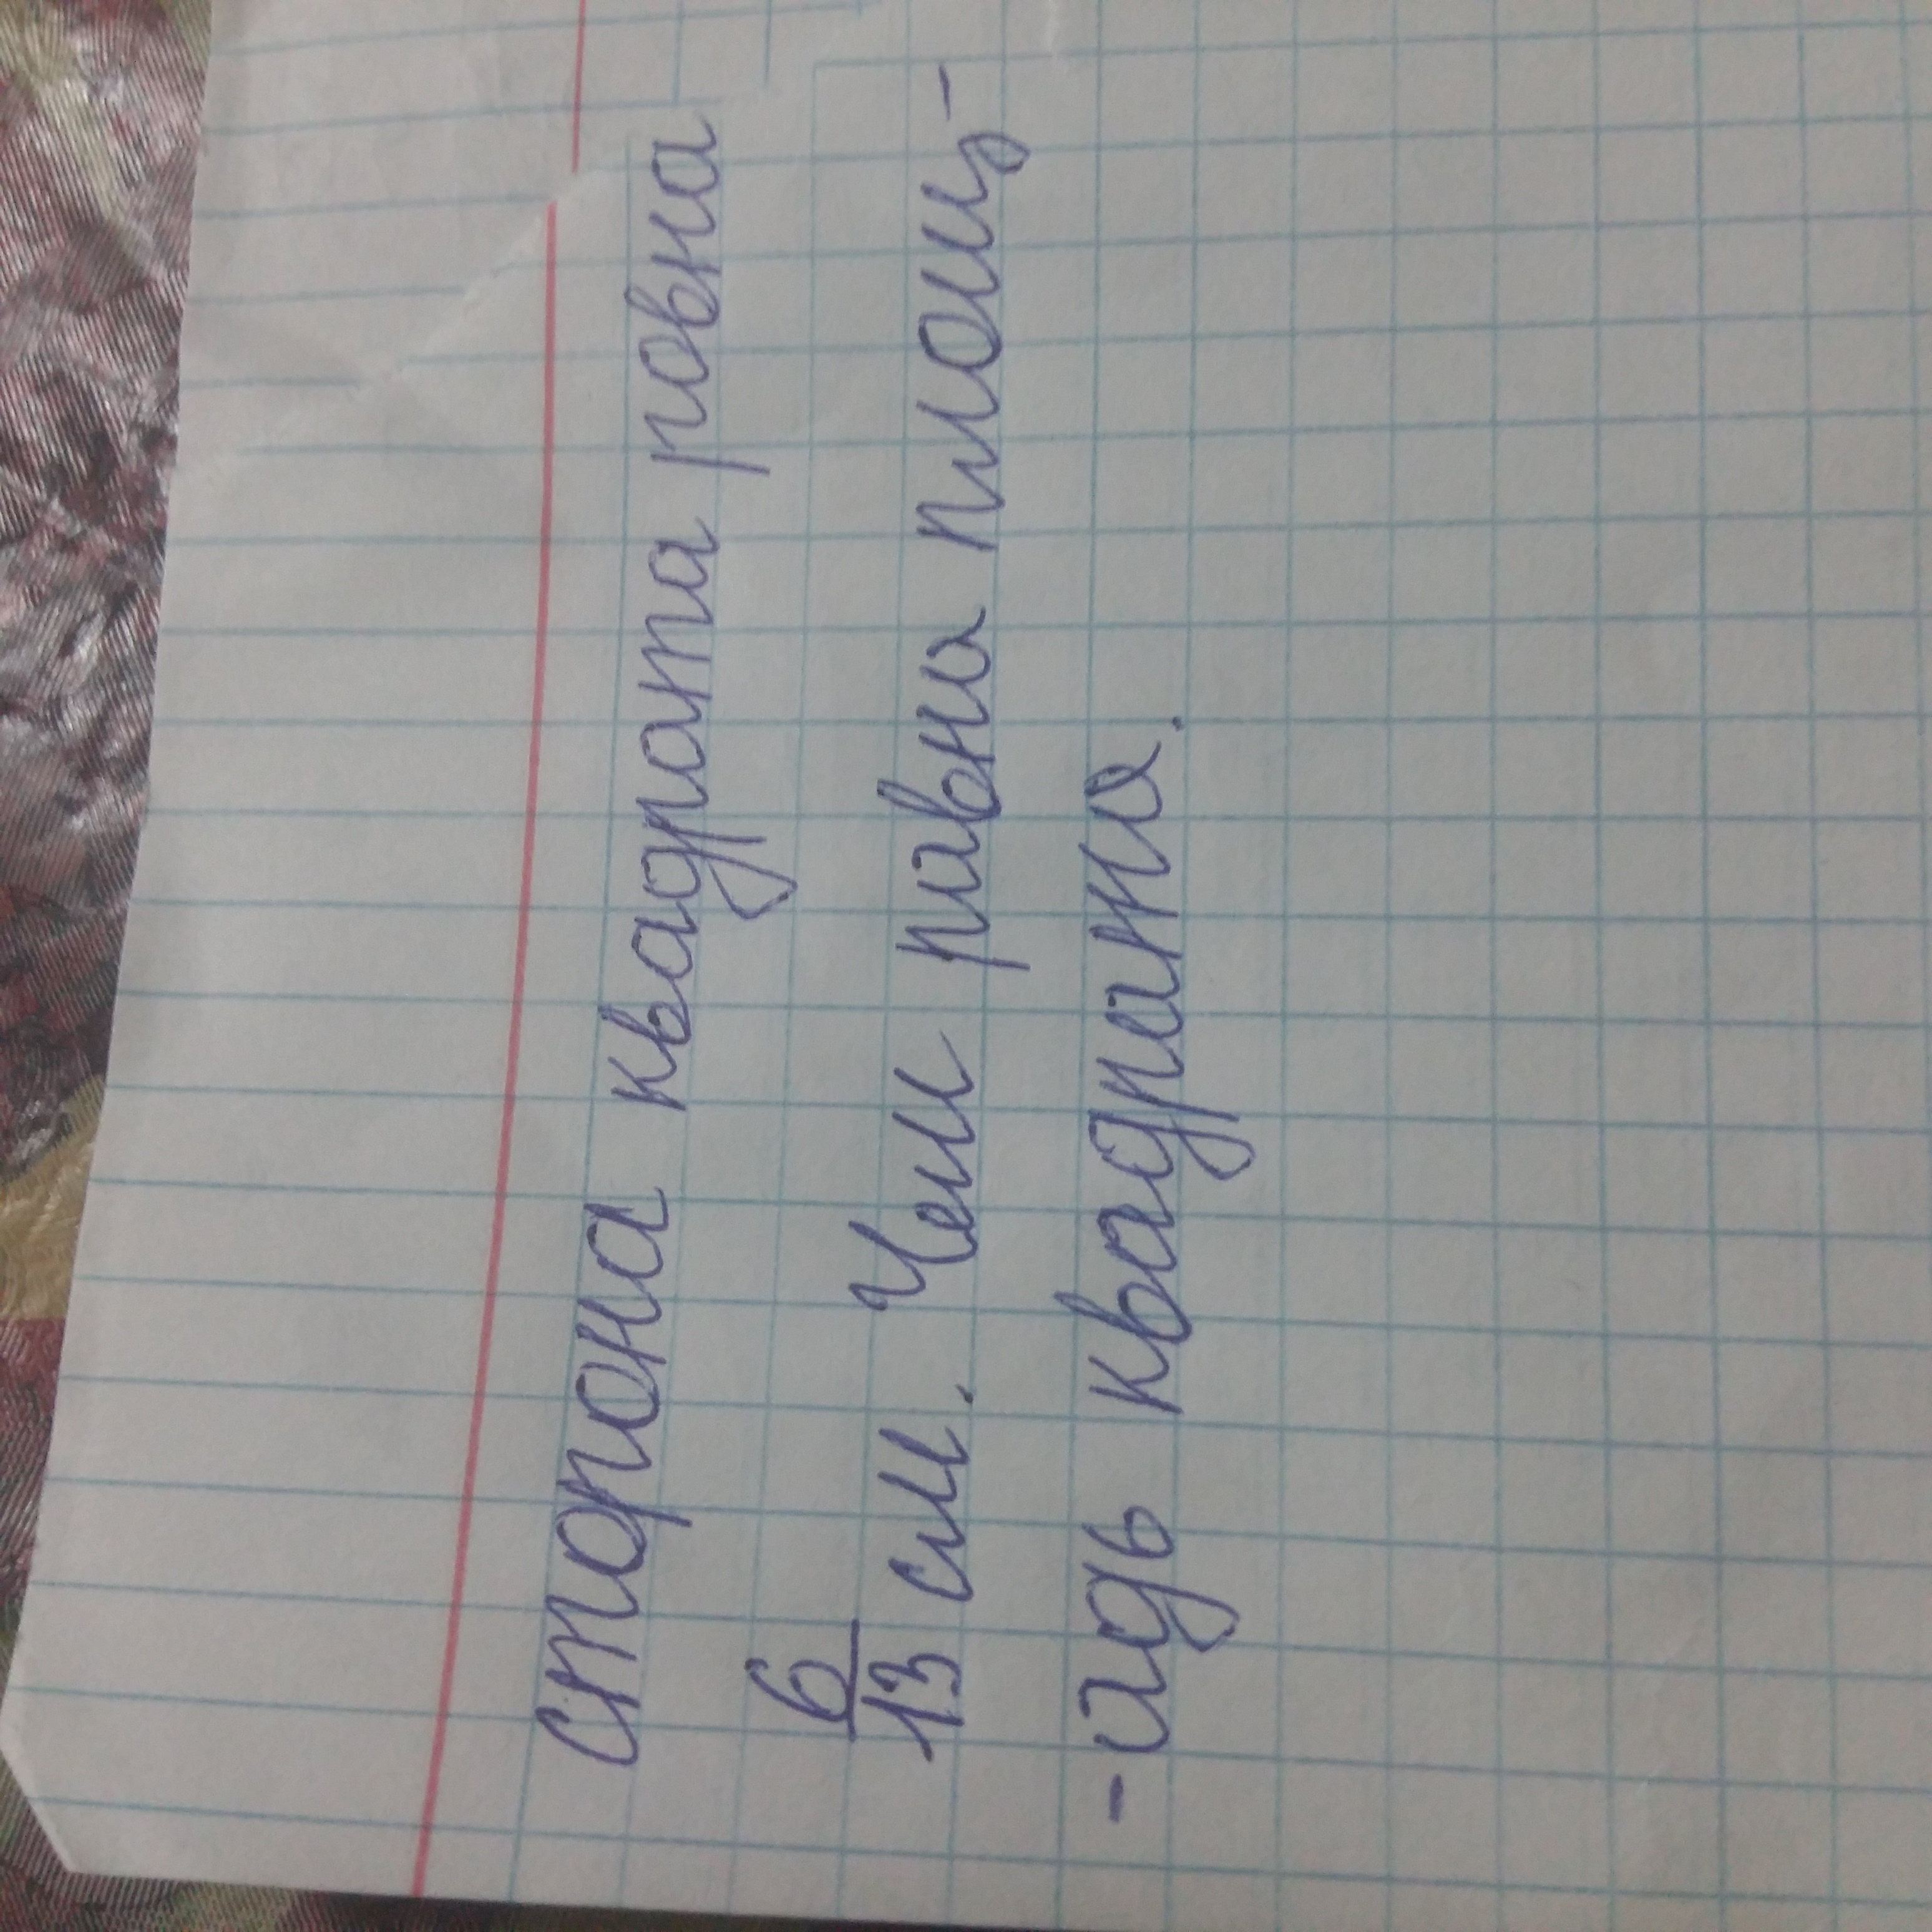 сторона квадрата равна
6/13 см. Чему равна площ-
-адь квадрата.